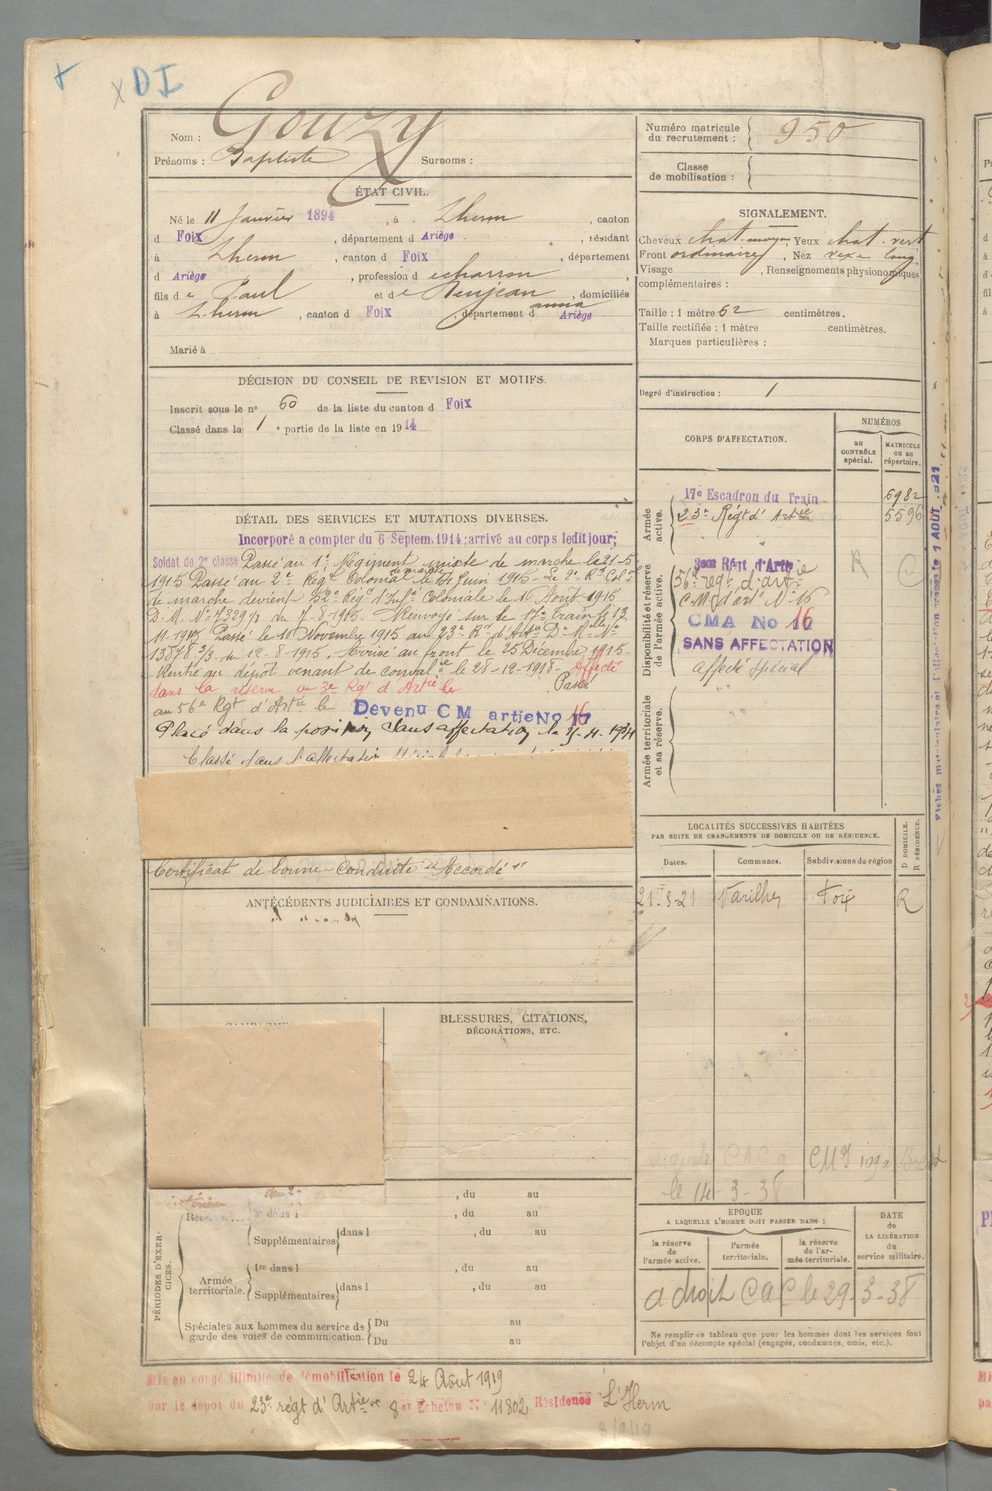 DI
Nom : Gouzy
Prénoms : Baptiste Surnoms :
ÉTAT CIVIL.
Né le 11 Janvier 1894, à Lherm, canton
d Foix, département d Ariège, résidant
à Lherm, canton d Foix, département
d Ariège, profession d charron,
fils de Paul et de Benjean anna, domiciliés
à Lherm, canton d Foix, département d Ariège
Marié à
DÉCISION DU CONSEIL DE REVISION ET MOTIFS.
Inscrit sous le n° 60 de la liste du canton d Foix
Classé dans la 1e partie de la liste en 1914
DÉTAIL DES SERVICES ET MUTATIONS DIVERSES.
Incorporé a compter du 6 Septem. 1914; arrivé au corps ledit jour;
Soldat de 2e classe Passé au 1er Régiment mixte de marche le 21-5
1915 Passé au 2e Régt Colonial de marche le Juin 1915 - Le 2e Rt Col
de marche devient 52e Régt d'Infie Coloniale le 16 Aout 1915
D. M. N° 7329 1/1 du 7-8-1915. Renvoyé sur le 17e Train le 13
11-1915 Passé le Novembre 1915 au 23e Rt d'Artie D. Mlle N°
13878 3/3 du 12-8-1915. Arrivé au front le 25 Décembre 1915 -
Rentré au dépôt venant de convalce le 28-12-1918 - Affecté
dans la réserve au 3e Rgt d'Artie le Passé
au 56e Rgt d'Artie le Devenu CM artie No 16
Placé dans la position Sans affectation le
Classé dans l'affectation
Certificat de bonne Conduite "Accordé"
ANTÉCÉDENTS JUDICIAIRES ET CONDAMNATIONS.
BLESSURES, CITATIONS,
DÉCORATIONS, ETC.
, du au
Rés , du au
Supplémentaires dans l , du au
PÉRIODES D'EXERCICES.
Armée territoriale. 1re dans l , du au
Supplémentaires dans l , du au
Spéciales aux hommes du service de garde des voies de communication. Du au
Du au
Mis en congé illimité de démobilisation le 24 Août 1919
par le dépôt du 23e régt d'Artie 8e Echelon N° 11802 Résidence L'Herm
Numéro matricule du recrutement : 950
Classe de mobilisation :
SIGNALEMENT.
Cheveux chat. moyen, Yeux chat. vert
Front ordinaire, Nez
Visage , Renseignements physionomiques
complémentaires :
Taille : 1 mètre 62 centimètres.
Taille rectifiée : 1 mètre centimètres.
Marques particulières :
Degré d'instruction : 1
CORPS D'AFFECTATION.
NUMÉROS
AU CONTRÔLE spécial.
MATRICULE ou au répertoire.
Armée active.
17e Escadron du Train 6982
23e Régt d'Artie 5596
Disponibilité et réserve de l'armée active.
3em Rég d'Artie
56e rég d'artie
C.M. d'art N° 16
CMA No 16
SANS AFFECTATION
affecté spécial
Armée territoriale et sa réserve.
LOCALITÉS SUCCESSIVES HABITÉES
PAR SUITE DE CHANGEMENTS DE DOMICILE OU DE RÉSIDENCE.
Dates. Communes. Subdivisions de région D DOMICILE. R RÉSIDENCE.
21-3-21 Varilhes Foix R
le 14-3-38
EPOQUE
A LAQUELLE L'HOMME DOIT PASSER DANS :
la réserve de l'armée active.
l'armée territoriale.
la réserve de l'armée territoriale.
DATE de LA LIBÉRATION du service militaire.
a droit CAC le 29-3-38
Ne remplir ce tableau que pour les hommes dont les services font
l'objet d'un décompte spécial (engagés, condamnés, omis, etc.).